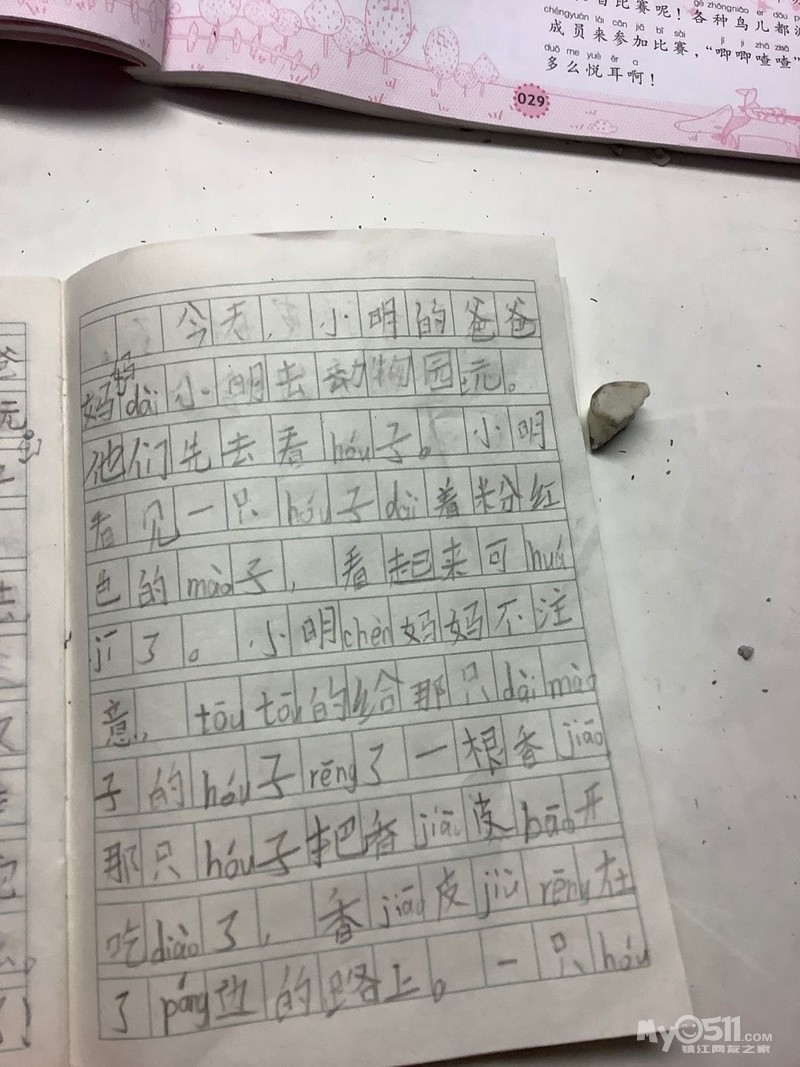 成员来参加比赛，“唧唧喳喳”
多么悦耳啊！
029
今天，小明的爸爸
妈妈dài小明去动物园玩。
他们先去看hóu子。小明
看见一只hóu子dài着粉红
色的mào子，看起来可huá
jī了。小明chèn妈妈不注
意，tōu tōu的给那只dài mào
子的hóu子rēng了一根香jiāo
那只hóu子把香jiāo皮bāo开
吃diào了，香jiāo皮jiù rēng在
了páng边的路上。一只hóu
My0511.com
镇江网友之家